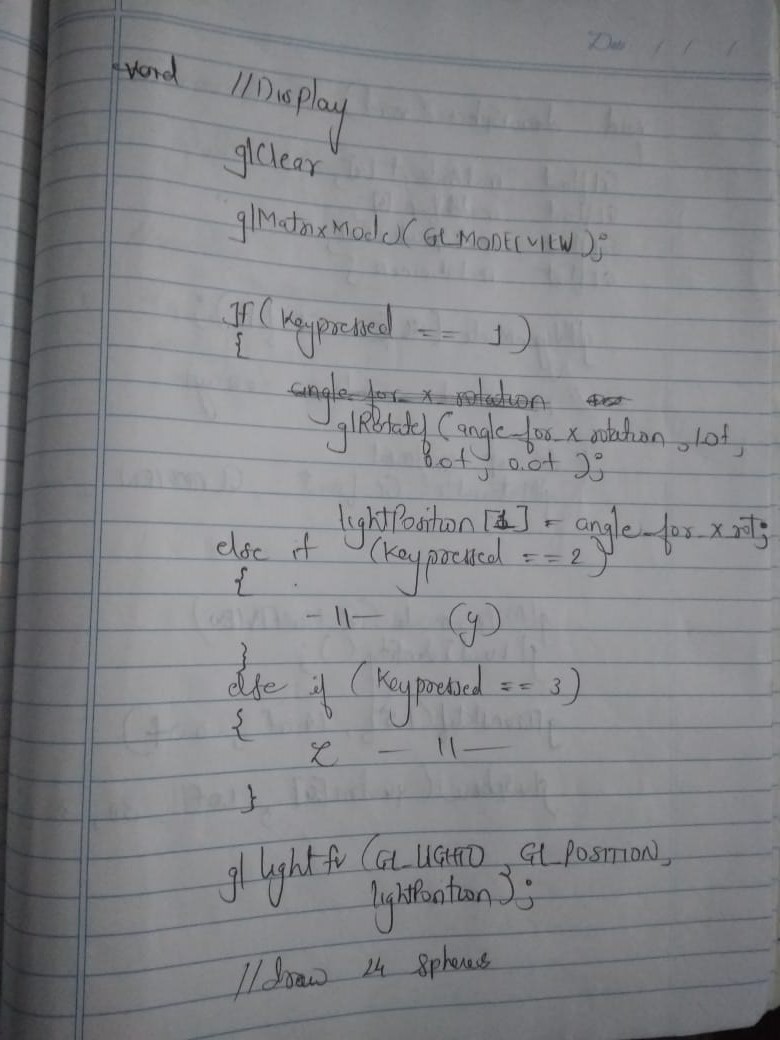 Date / / /
void //Display
glClear
glMatrixMode(GL_MODELVIEW);
If (Keypressed == 1)
{
angle_for_x_rotation
glRotatef (angle_for_x_rotation, 1.0f,
0.0f, 0.0f );
lightPosition [1] = angle_for_x_rot;
else if (Keypressed == 2)
{
- 11 - (y)
}
else if (Keypressed == 3)
{
z - 11 -
}
gl lightfv (GL_LIGHT0, GL_POSITION,
lightPosition);
//draw 24 spheres